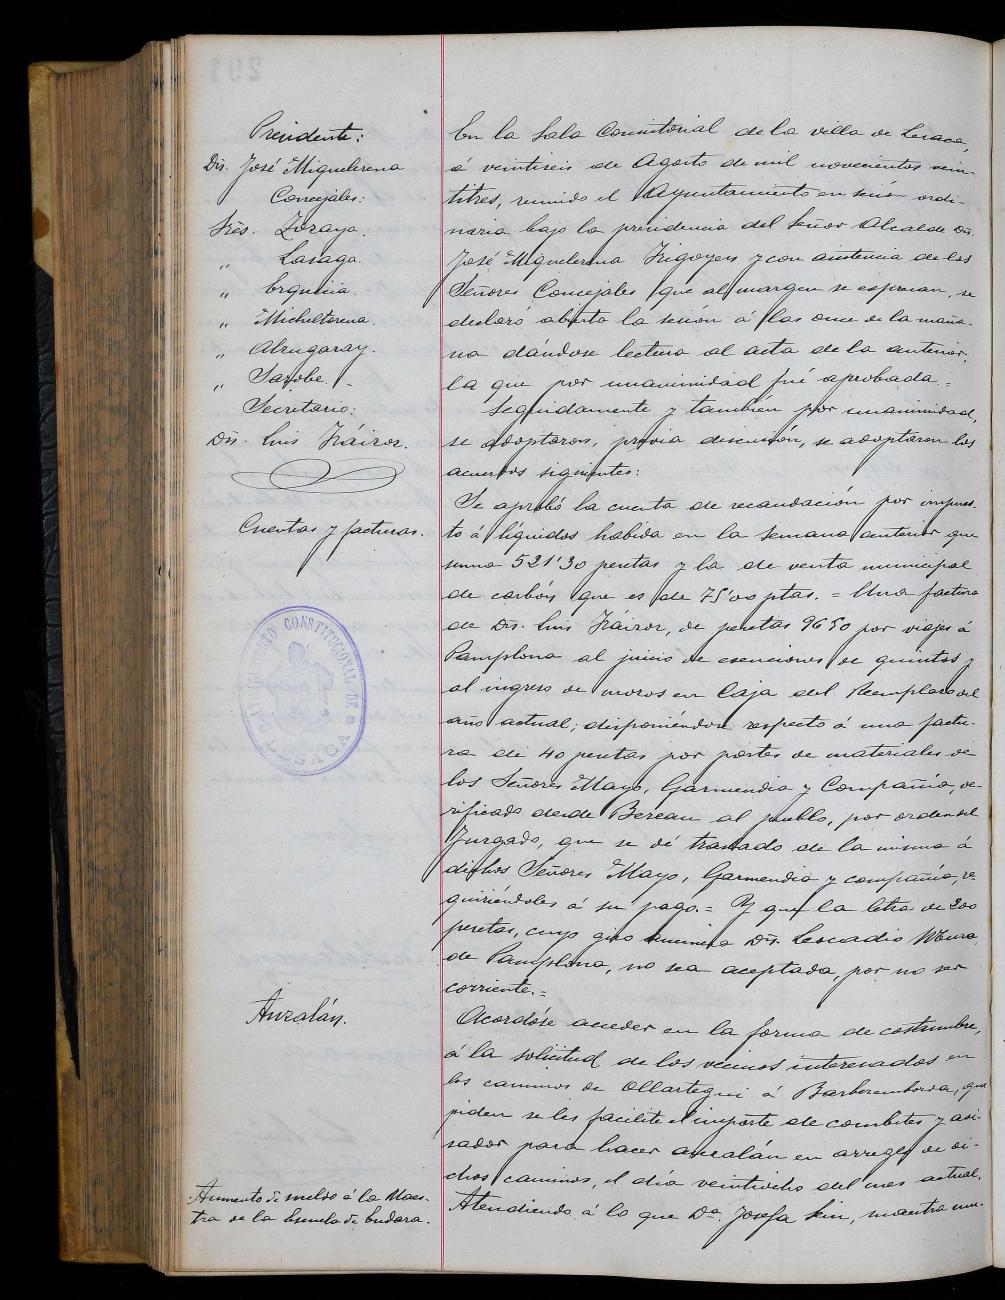 Presidente:
Dn. José Miguelerena
Concejales:
Sres. Zoraya.
„ Lasaga.
„ Erquicia.
„ Micheltorena.
„ Alzugaray.
„ Sarobe.
Secretario:
Dn. Luis Iráizoz.
Cuentas y facturas.
AYUNTAMIENTO CONSTITUCIONAL DE LESACA
Auzalán.
Aumento de sueldo á la Maes-
tra de la Escuela de Endara.
En la Sala Consistorial de la villa de Lesaca,
á veintiseis de Agosto de mil novecientos vein-
titres, reunido el Ayuntamiento en sesión ordi-
naria bajo la presidencia del Señor Alcalde Dn.
José Miguelerena Irigoyen y con asistencia de los
Señores Concejales que al margen se expresan, se
declaró abierta la sesión á las once de la maña-
na dándose lectura al acta de la anterior,
la que por unanimidad fué aprobada.=
Seguidamente y también por unanimidad,
se adoptaron, previa discusión, se adoptaron los
acuerdos siguientes:
Se aprobó la cuenta de recaudación por impues-
to á líquidos habida en la semana anterior que
suma 521'30 pesetas y la de venta municipal
de carbón que es de 75'00 ptas. = Una factura
de Dn. Luis Iráizoz, de pesetas 96'50 por viajes á
Pamplona al juicio de exenciones de quintos y
al ingreso de mozos en Caja del Reemplazo del
año actual; disponiéndose respecto á una factu-
ra de 40 pesetas por portes de materiales de
los Señores Mayo, Garmendia y Compañía, ve-
rificado desde Bereau al pueblo, por orden del
Juzgado, que se dé traslado de la misma á
dichos Señores Mayo, Garmendia y compañía, re-
quiriéndoles á su pago.= Y que la letra de 200
pesetas, cuyo giro anuncia Dn. Leocadio
de Pamplona, no sea aceptada, por no ser
corriente.=
Acordóse acceder en la forma de costumbre,
á la solicitud de los vecinos interesados en
los caminos de Ollartegui á que
piden se les facilite el importe de combites y asi-
sador para hacer auzalán en arreglo de di-
chos caminos, el día veintiocho del mes actual.
Atendiendo á lo que Da. Josefa maestra mu-